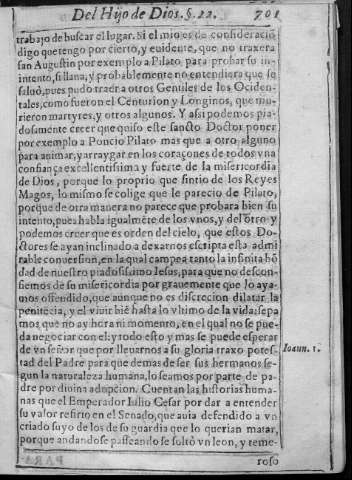 Del Hijo de Dios. §. 22. 701
trabajo de buscar el lugar. Si el mio es de consideració
digo que tengo por cierto, y euidente, que no traxera
san Augustin por exemplo a Pilato para probar su in
intento, si llana, y probablemente no entendiera que se
saluò, pues pudo traer a otros Gentiles de los Ociden-
tales, como fueron el Centurion y Longinos, que mu-
rieron martyres, y otros algunos. Y assi podemos pia-
dosamente creer que quiso este sancto Doctor poner
por exemplo a Poncio Pilato mas que a otro alguno
para animar, y arraygar en los coraçones de todos vna
confiança excellentissima y fuerte de la misericordia
de Dios, porque lo proprio que sintio de los Reyes
Magos, lo mismo se colige que le parecio de Pilato,
porque de otra manera no parece que probara bien su
intento, pues habla igualmēte de los vnos, y del otro y
podemos creer que es orden del cielo, que estos Do-
ctores se ayan inclinado a dexarnos escripta esta admi
rable conuersion, en la qual campea tanto la infinita bō
dad de nuestro piadosissimo Iesus, para que no descon-
fiemos de su misericordia por grauemente que lo aya-
mos offendido, que aunque no es discrecion dilatar la
penitēcia, y el viuir biē hasta lo vltimo de la vida: sepa
mos que no ay hora ni momento, en el qual no se pue-
da negociar con el: y todo esto y mas se puede esperar
de vn señor que por lleuarnos a su gloria traxo potes-
tad del Padre para que demas de ser sus hermanos se-
gun la naturaleza humana, lo seamos por parte de pa-
dre por diuina adupcion. Cuentan las historias huma-
nas que el Emperador Iulio Cesar por dar a entender
su valor refirio en el Senado, que auia defendido a vn
criado suyo de los de su guardia que lo querian matar,
porque andandose passeando se soltò vn leon, y reme-
roso
Ioann. 1.